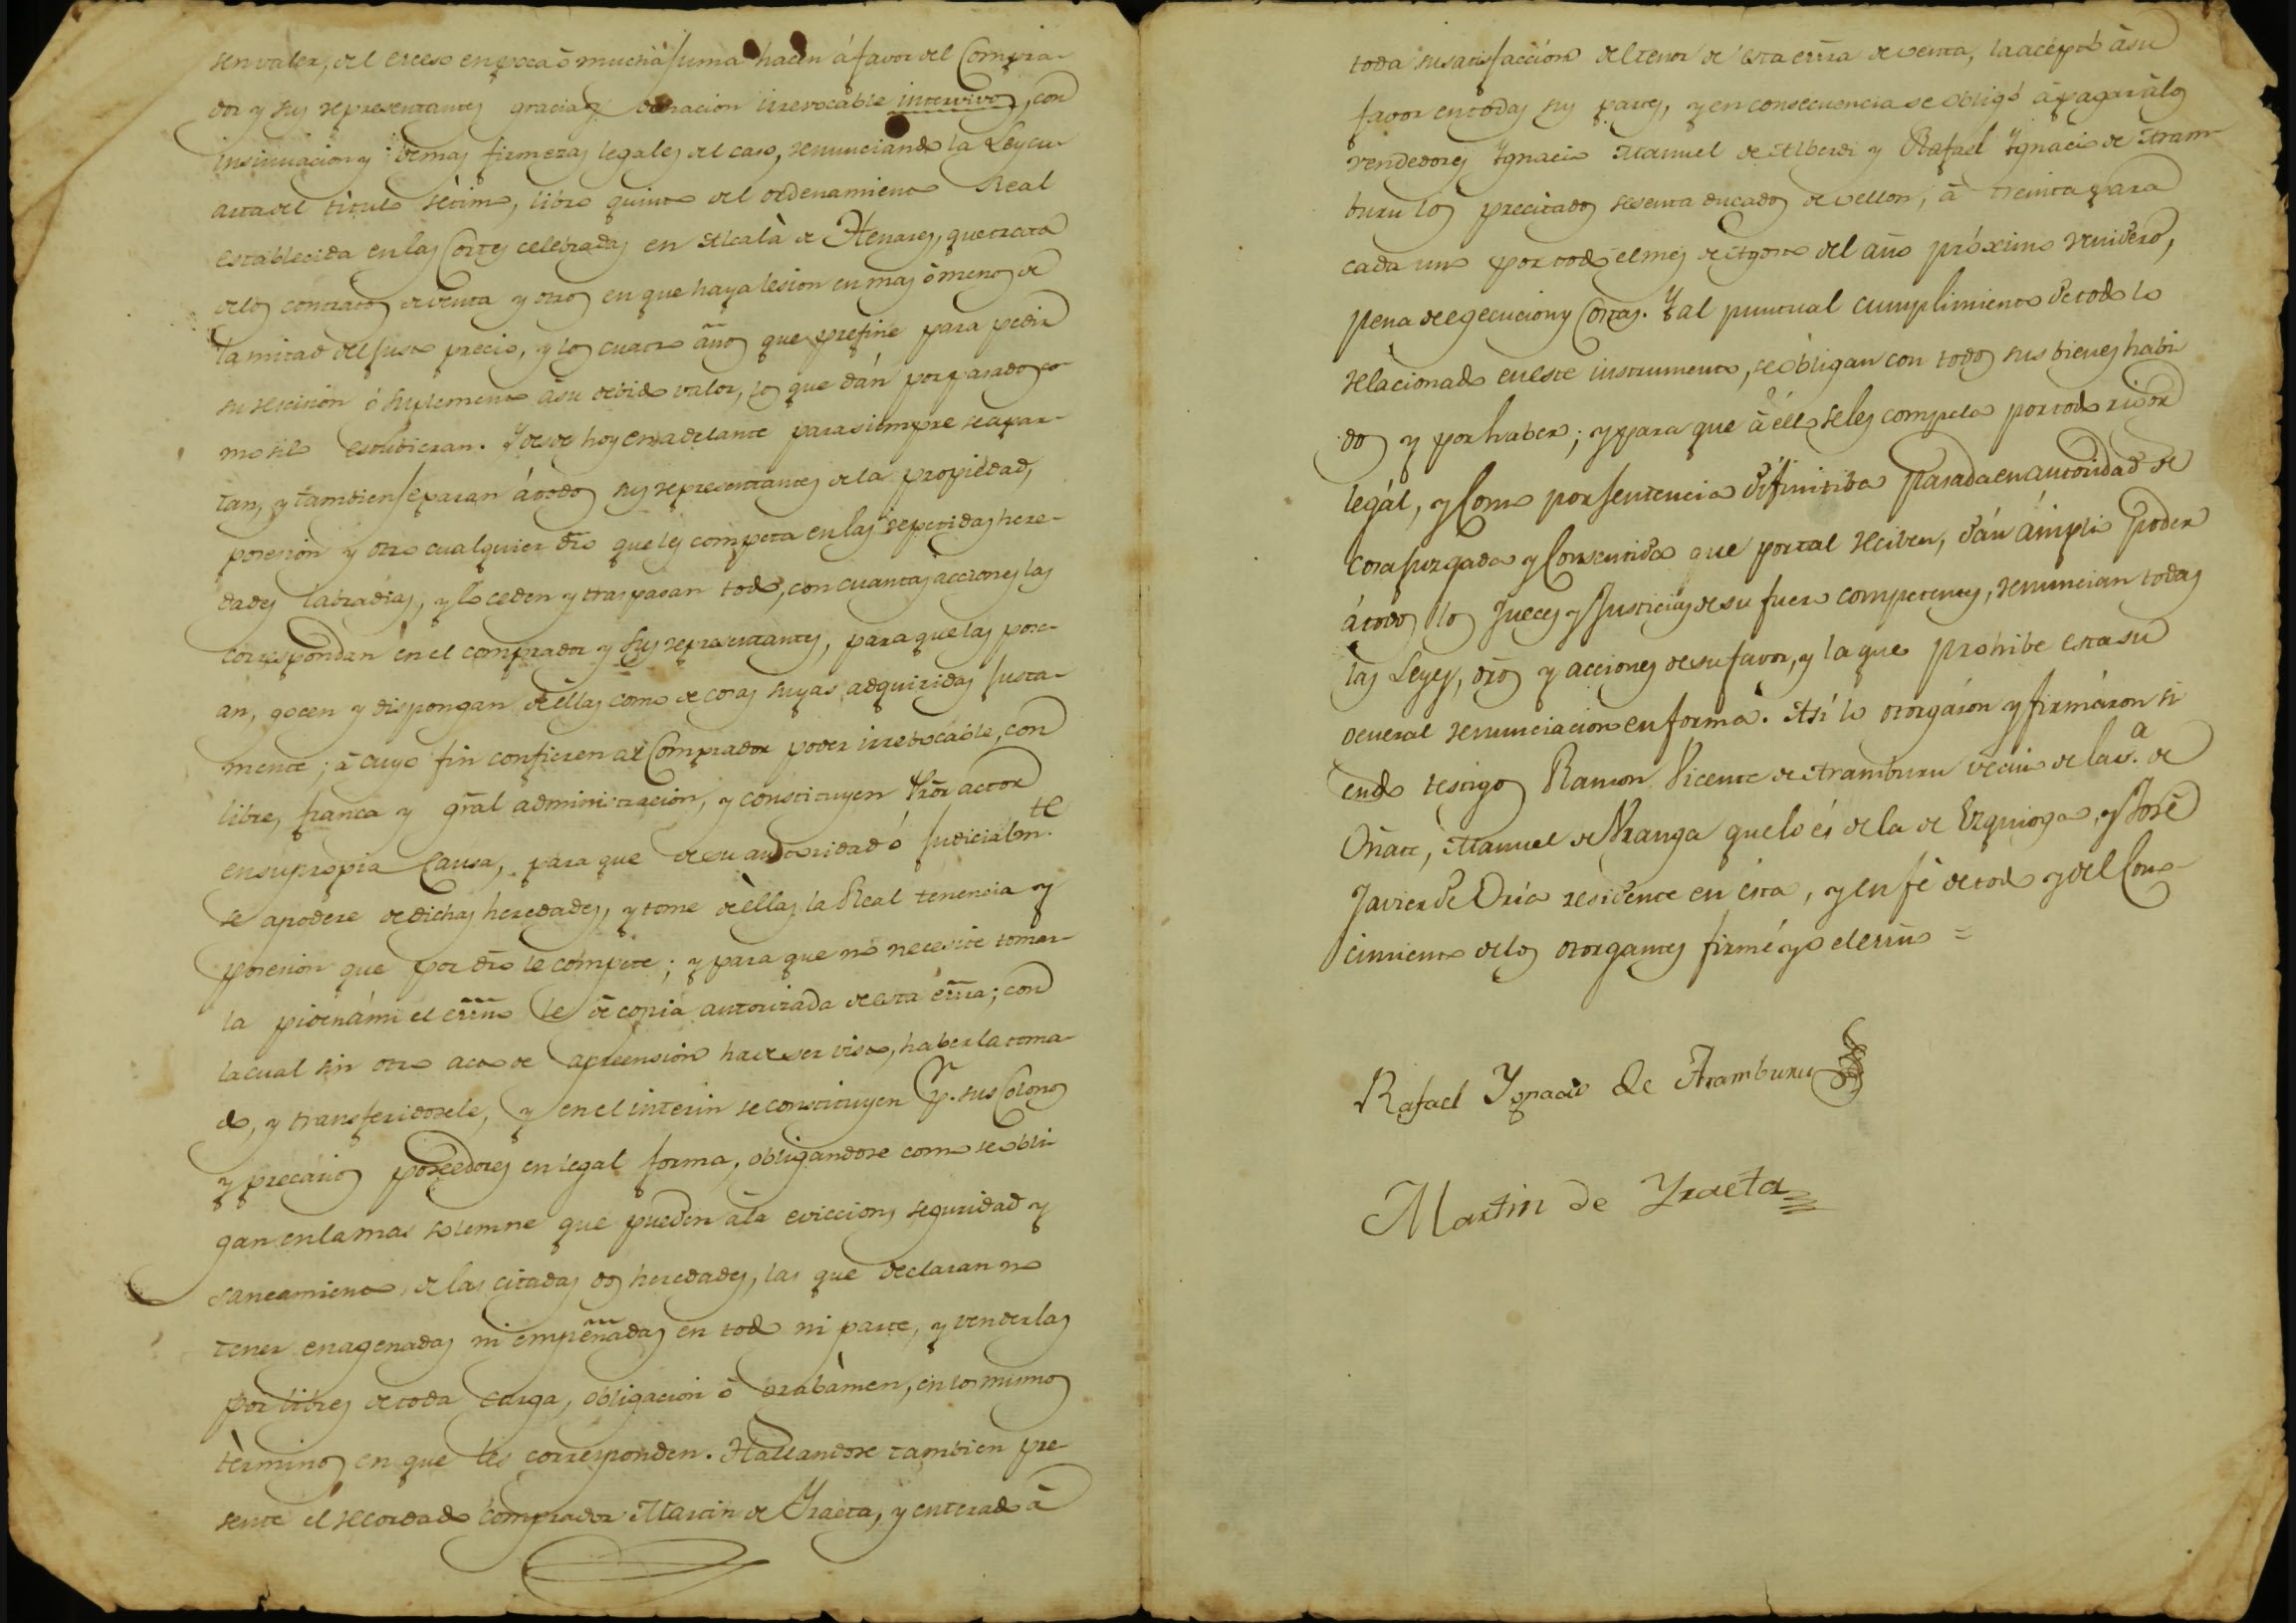 sen valer, del exceso en poca ó mucha suma hacen á favor del Compra-
dor y sus representantes gracia y donacion irrevocable intervivos, con
insinuacion y demas firmezas legales del caso, renunciando la Ley cu-
arta del titulo sètimo, libro quinto del ordenamiento Real
establecida en las Cortes celebradas en Alcalà de Henares, que trata
de los contratos de venta y otros en que haya lesion en mas ò menos de
la mitad del justo precio, y los cuatro años que prefine para pedir
su rescision ó suplemento à su debido valor, los que dán por pasados co-
mo si lo estubieran. Y desde hoy en adelante para siempre se apar-
tan, y tambien separan á todos sus representantes de la propiedad,
posesion y otro cualquier dro que les competa en las repetidas here-
dades labradias, y lo ceden y traspasan todo, con cuantas acciones las
correspondan en el comprador y sus representantes, para que las pose-
an, gocen y dispongan de èllas como de cosas suyas adquiridas justa-
mente; à cuyo fin confieren al Comprador poder irrebocable, con
libre, franca y gral administracion, y constituyen Pror actor
en su propia Causa, para que de su autoridad ó judicialmte
se apodere de dichas heredades, y tome de èllas la Real tenencia y
posesion que por dro le compete; y para que no necesite tomar-
la piden á mi el essno le dè copia autorizada de esta essra; con
la cual sin otro acto de apreension ha de ser visto, haberla toma-
do, y transferidosele, y en el interin se constituyen pr. sus Colonos
y precarios poseedores en legal forma, obligandose como se obli-
gan en la mas solemne que pueden à la eviccion, seguridad y
saneamiento de las citadas dos heredades, las que declaran no
tener enagenadas ni empeñadas en todo ni parte, y venderlas
por libres de toda carga, obligacion ò grabàmen, en los mismos
tèrminos en que les corresponden. Hallandose tambien pre-
sente el recordado comprador Martin de Yraeta, y enterado à
toda su satisfaccion del tenor de esta essra de venta, la aceptó à su
favor en todas sus partes, y en consecuencia se obligó à pagar à los
vendedores Ygnacio Manuel de Alberdi y Rafael Ygnacio de Aram-
buru los precitados sesenta ducados de vellon, à treinta para
cada uno por todo el mes de Agosto del año próximo venidero,
pena de egecucion y Costas. Y al puntual cumplimiento de todo lo
relacionado en este instrumento, se obligan con todos sus bienes habi
dos y por haber; y para que à éllo se les compela por todo rigor
legál, y Como por sentencia difinitiba pasada en autoridad de
Cosa juzgada y Consentida que por tal reciben, dán ámplio Poder
á todos los Jueces y Justicias de su fuero competentes, renuncian todas
las Leyes, dros y acciones de su favor, y la que prohibe esta su
general renunciacion en forma. Asi lo otorgáron y firmáron si
endo testigos Ramon Vicente de Aramburu vecino de la va. de
Oñate, Manuel de Uranga que lo és de la de Ezquioga, y José
Javier de Oria residente en esta, y en fè de todo y del Cono-
cimiento de los otorgantes firmé yo el essno =
Rafael Ygnacio de Aramburu
Martin de Yraeta